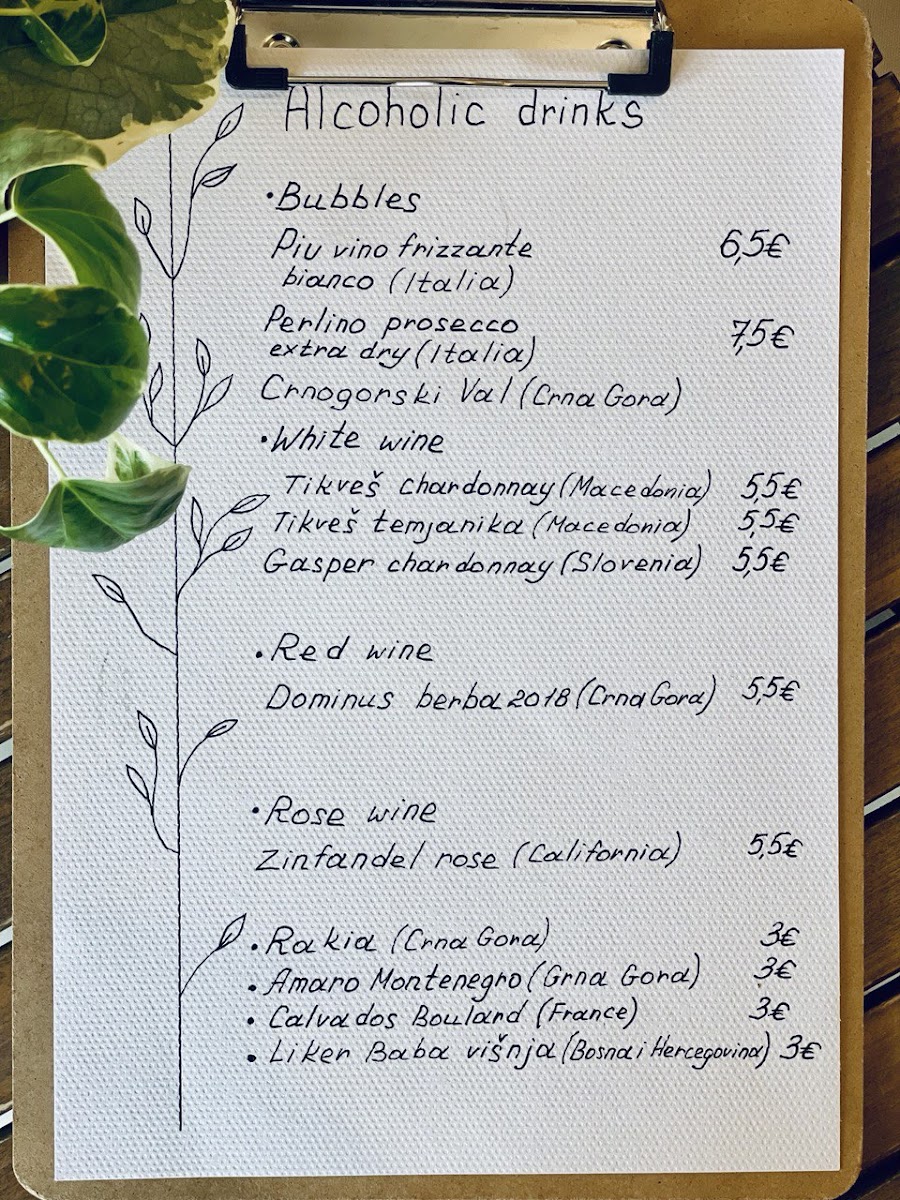 Alcoholic drinks
• Bubbles
Piu vino frizzante 6,5€
bianco (Italia)
Perlino prosecco
extra dry (Italia) 7,5€
Crnogorski Val (Crna Gora)
• White wine
Tikveš chardonnay (Macedonia) 5,5€
Tikveš temjanika (Macedonia) 5,5€
Gasper chardonnay (Slovenia) 5,5€
• Red wine
Dominus berba 2018 (Crna Gora) 5,5€
• Rose wine
Zinfandel rose (California) 5,5€
• Rakia (Crna Gora) 3€
• Amaro Montenegro (Grna Gora) 3€
• Calvados Boulard (France) 3€
• Liker Baba višnja (Bosna i Hercegovina) 3€